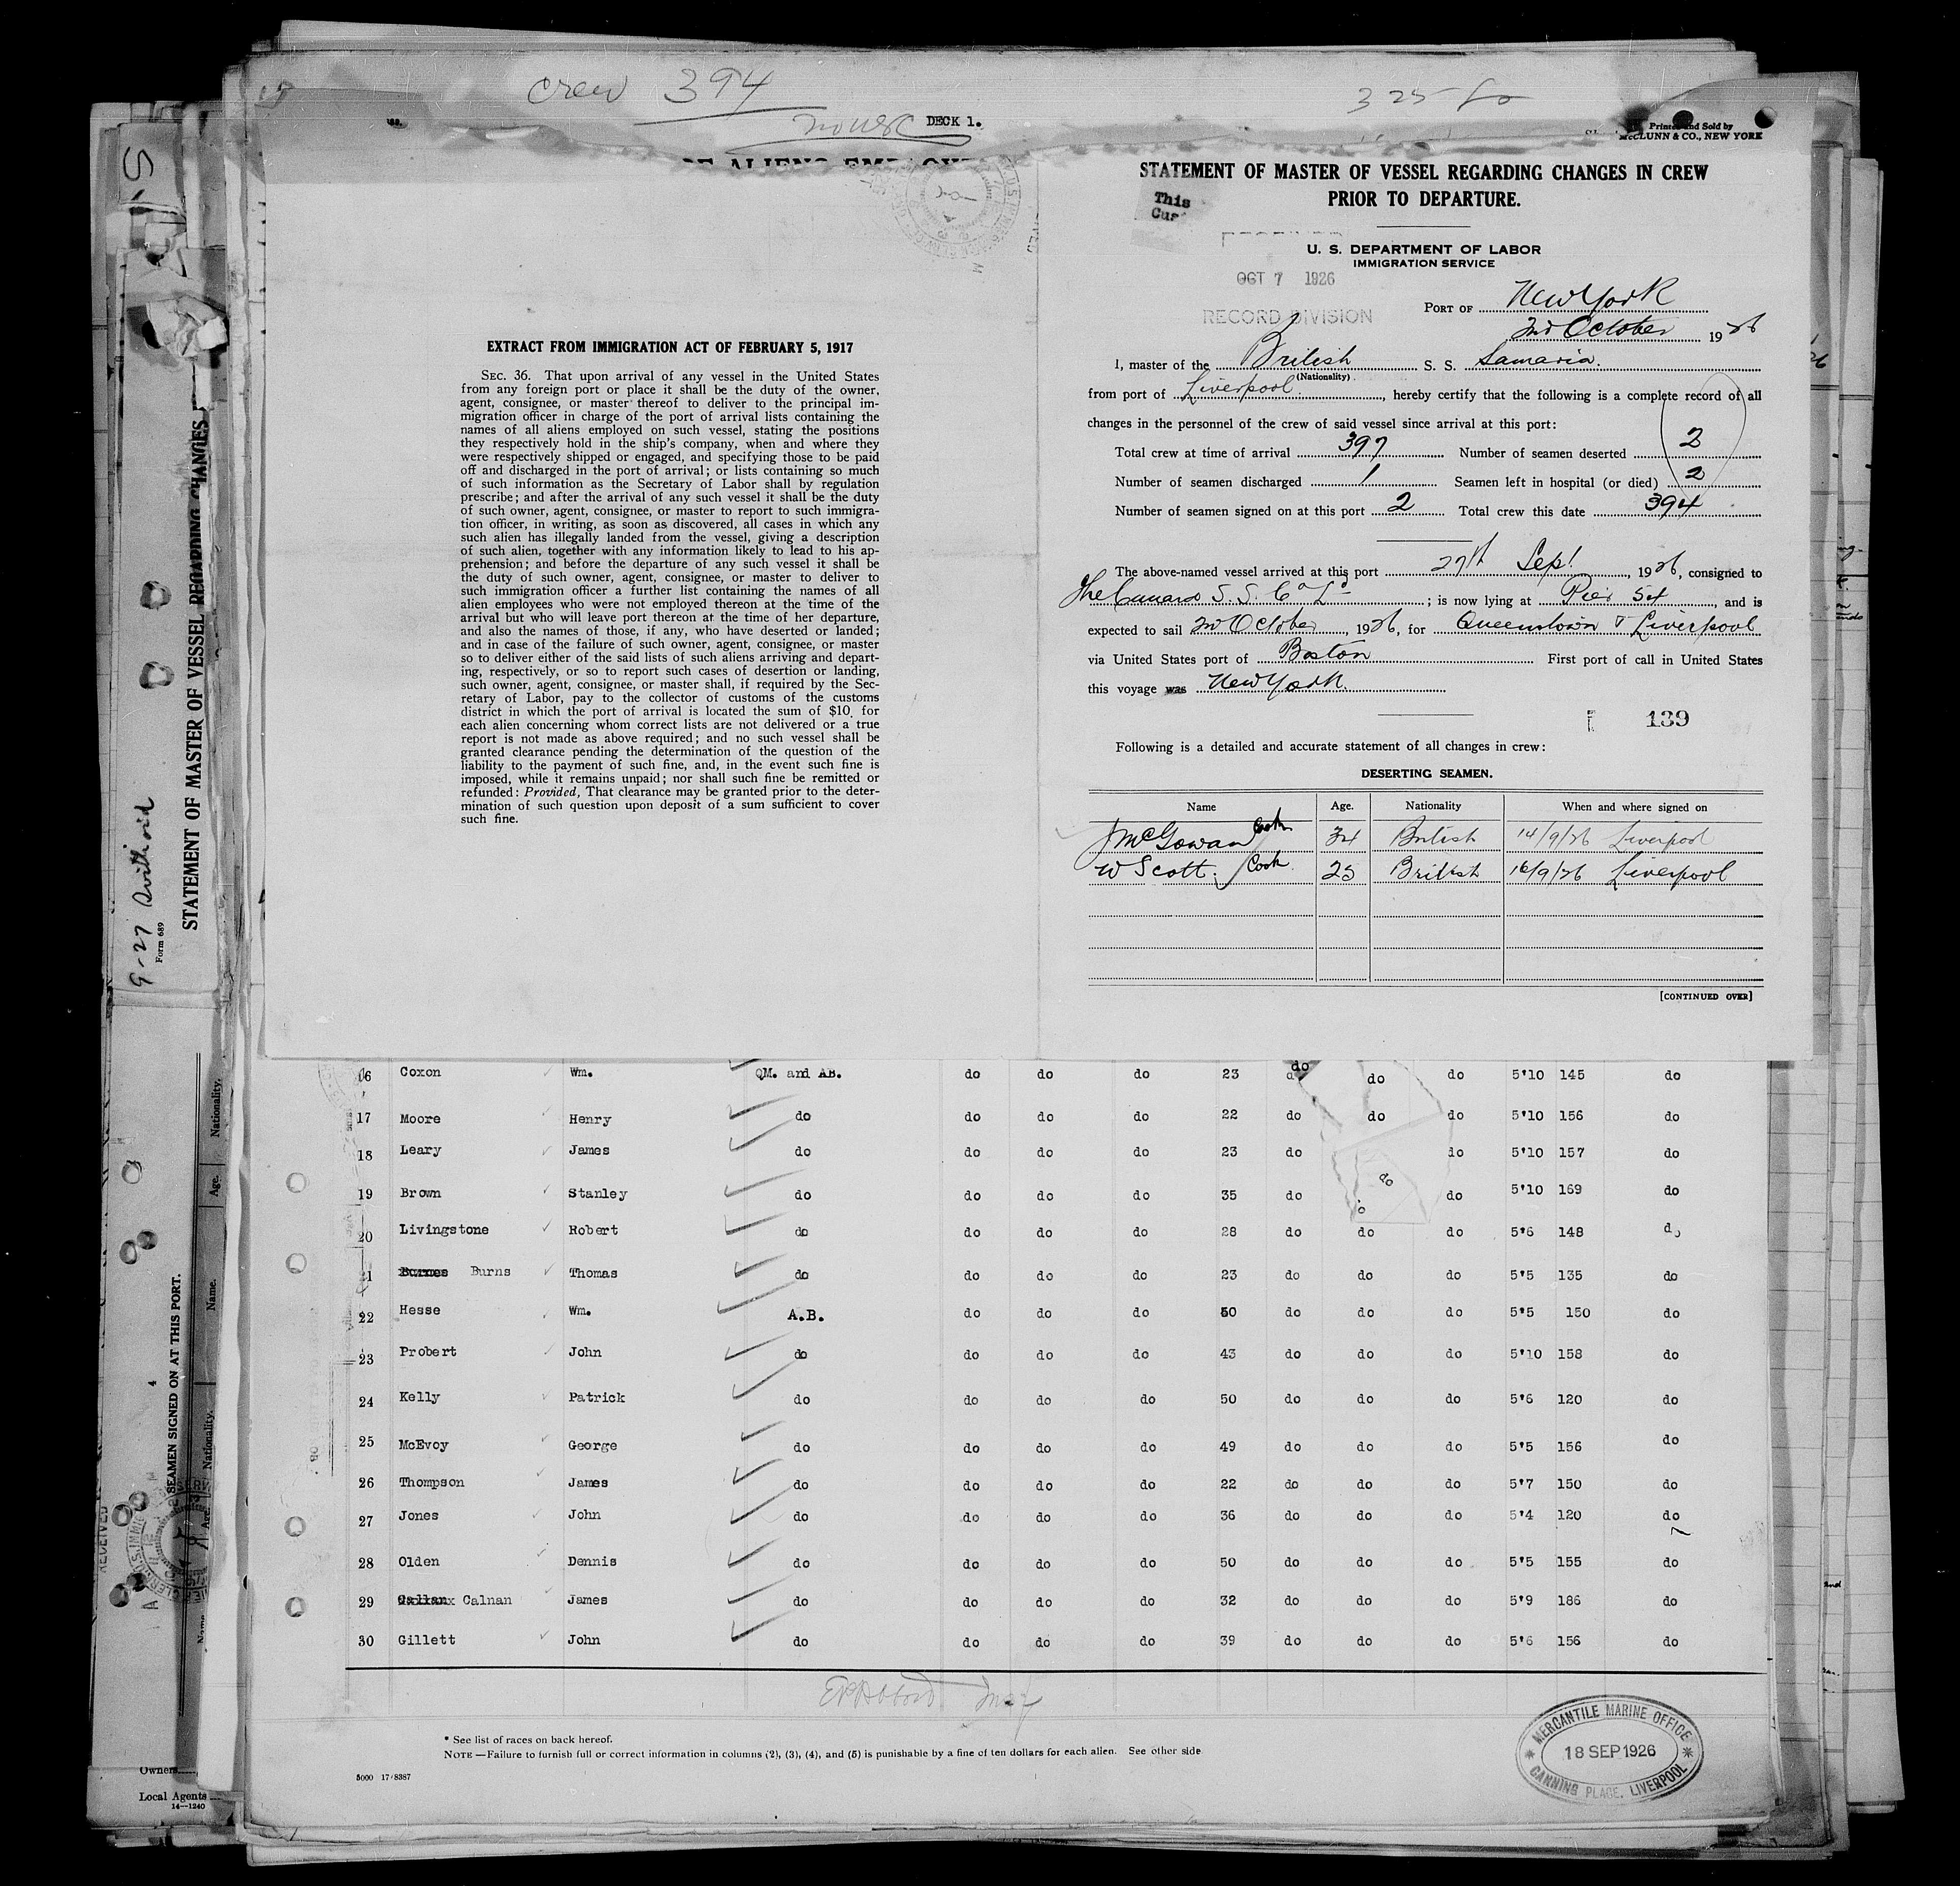 crew 394
325
DECK 1.
Printed and Sold by
McCLUNN & CO., NEW YORK
STATEMENT OF MASTER OF VESSEL REGARDING CHANGES IN CREW
PRIOR TO DEPARTURE.
This
U. S. DEPARTMENT OF LABOR
IMMIGRATION SERVICE
OCT 7 1926
RECORD DIVISION
PORT OF New York
2nd October 1926
I, master of the British S. S. Samaria.
(Nationality)
from port of Liverpool, hereby certify that the following is a complete record of all
changes in the personnel of the crew of said vessel since arrival at this port:
Total crew at time of arrival 397 Number of seamen deserted 2
Number of seamen discharged 1 Seamen left in hospital (or died) 2
Number of seamen signed on at this port 2 Total crew this date 394
The above-named vessel arrived at this port 27th Sept 1926, consigned to
The Cunard S. S. Co Ld; is now lying at Pier 54, and is
expected to sail 2nd October, 1926, for Queenstown & Liverpool
via United States port of Boston First port of call in United States
this voyage was New York.
139
Following is a detailed and accurate statement of all changes in crew:
DESERTING SEAMEN.
Name Age. Nationality When and where signed on
J McGowan Cook 34 British 14/9/26 Liverpool
W Scott. Cook 25 British 16/9/26 Liverpool
[CONTINUED OVER]
EXTRACT FROM IMMIGRATION ACT OF FEBRUARY 5, 1917
SEC. 36. That upon arrival of any vessel in the United States
from any foreign port or place it shall be the duty of the owner,
agent, consignee, or master thereof to deliver to the principal im-
migration officer in charge of the port of arrival lists containing the
names of all aliens employed on such vessel, stating the positions
they respectively hold in the ship's company, when and where they
were respectively shipped or engaged, and specifying those to be paid
off and discharged in the port of arrival; or lists containing so much
of such information as the Secretary of Labor shall by regulation
prescribe; and after the arrival of any such vessel it shall be the duty
of such owner, agent, consignee, or master to report to such immigra-
tion officer, in writing, as soon as discovered, all cases in which any
such alien has illegally landed from the vessel, giving a description
of such alien, together with any information likely to lead to his ap-
prehension; and before the departure of any such vessel it shall be
the duty of such owner, agent, consignee, or master to deliver to
such immigration officer a further list containing the names of all
alien employees who were not employed thereon at the time of the
arrival but who will leave port thereon at the time of her departure,
and also the names of those, if any, who have deserted or landed;
and in case of the failure of such owner, agent, consignee, or master
so to deliver either of the said lists of such aliens arriving and depart-
ing, respectively, or so to report such cases of desertion or landing,
such owner, agent, consignee, or master shall, if required by the Sec-
retary of Labor, pay to the collector of customs of the customs
district in which the port of arrival is located the sum of $10 for
each alien concerning whom correct lists are not delivered or a true
report is not made as above required; and no such vessel shall be
granted clearance pending the determination of the question of the
liability to the payment of such fine, and, in the event such fine is
imposed, while it remains unpaid; nor shall such fine be remitted or
refunded: Provided, That clearance may be granted prior to the deter-
mination of such question upon deposit of a sum sufficient to cover
such fine.
STATEMENT OF MASTER OF VESSEL REGARDING CHANGES
Form 689
SEAMEN SIGNED ON AT THIS PORT.
Nationality. Age. Name. Nationality.
16 Coxon Wm. QM. and AB. do do do 23 do do do 5'10 145 do
17 Moore Henry do do do do 22 do do do 5'10 156 do
18 Leary James do do do do 23 do do 5'10 157 do
19 Brown Stanley do do do do 35 do do do 5'10 169 do
20 Livingstone Robert do do do do 28 do do do 5'6 148 do
21 Burns Thomas do do do do 23 do do do 5'5 135 do
22 Hesse Wm. A.B. do do do 50 do do do 5'5 150 do
23 Probert John do do do do 43 do do do 5'10 158 do
24 Kelly Patrick do do do do 50 do do do 5'6 120 do
25 McEvoy George do do do do 49 do do do 5'5 156 do
26 Thompson James do do do do 22 do do do 5'7 150 do
27 Jones John do do do do 36 do do do 5'4 120 do
28 Olden Dennis do do do do 50 do do do 5'5 155 do
29 Calnan James do do do do 32 do do do 5'9 186 do
30 Gillett John do do do do 39 do do do 5'6 156 do
* See list of races on back hereof.
NOTE—Failure to furnish full or correct information in columns (2), (3), (4), and (5) is punishable by a fine of ten dollars for each alien. See other side
5000 17/8387
MERCANTILE MARINE OFFICE
18 SEP 1926
CANNING PLACE, LIVERPOOL
Owners
Local Agents
14—1240